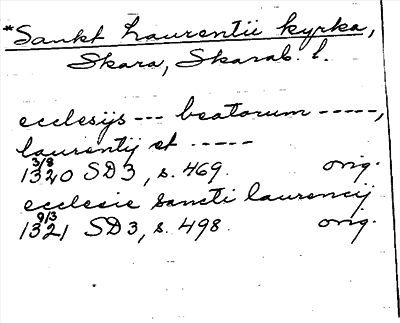 *Sankt Laurentii kyrka,
Skara, Skarab. l.
ecclesijs --- beatorum -----,
laurentij et -----
3/8
1320 SD3, s. 469. orig.
ecclesie sancti laurencij
9/3
1321 SD3, s. 498. orig.